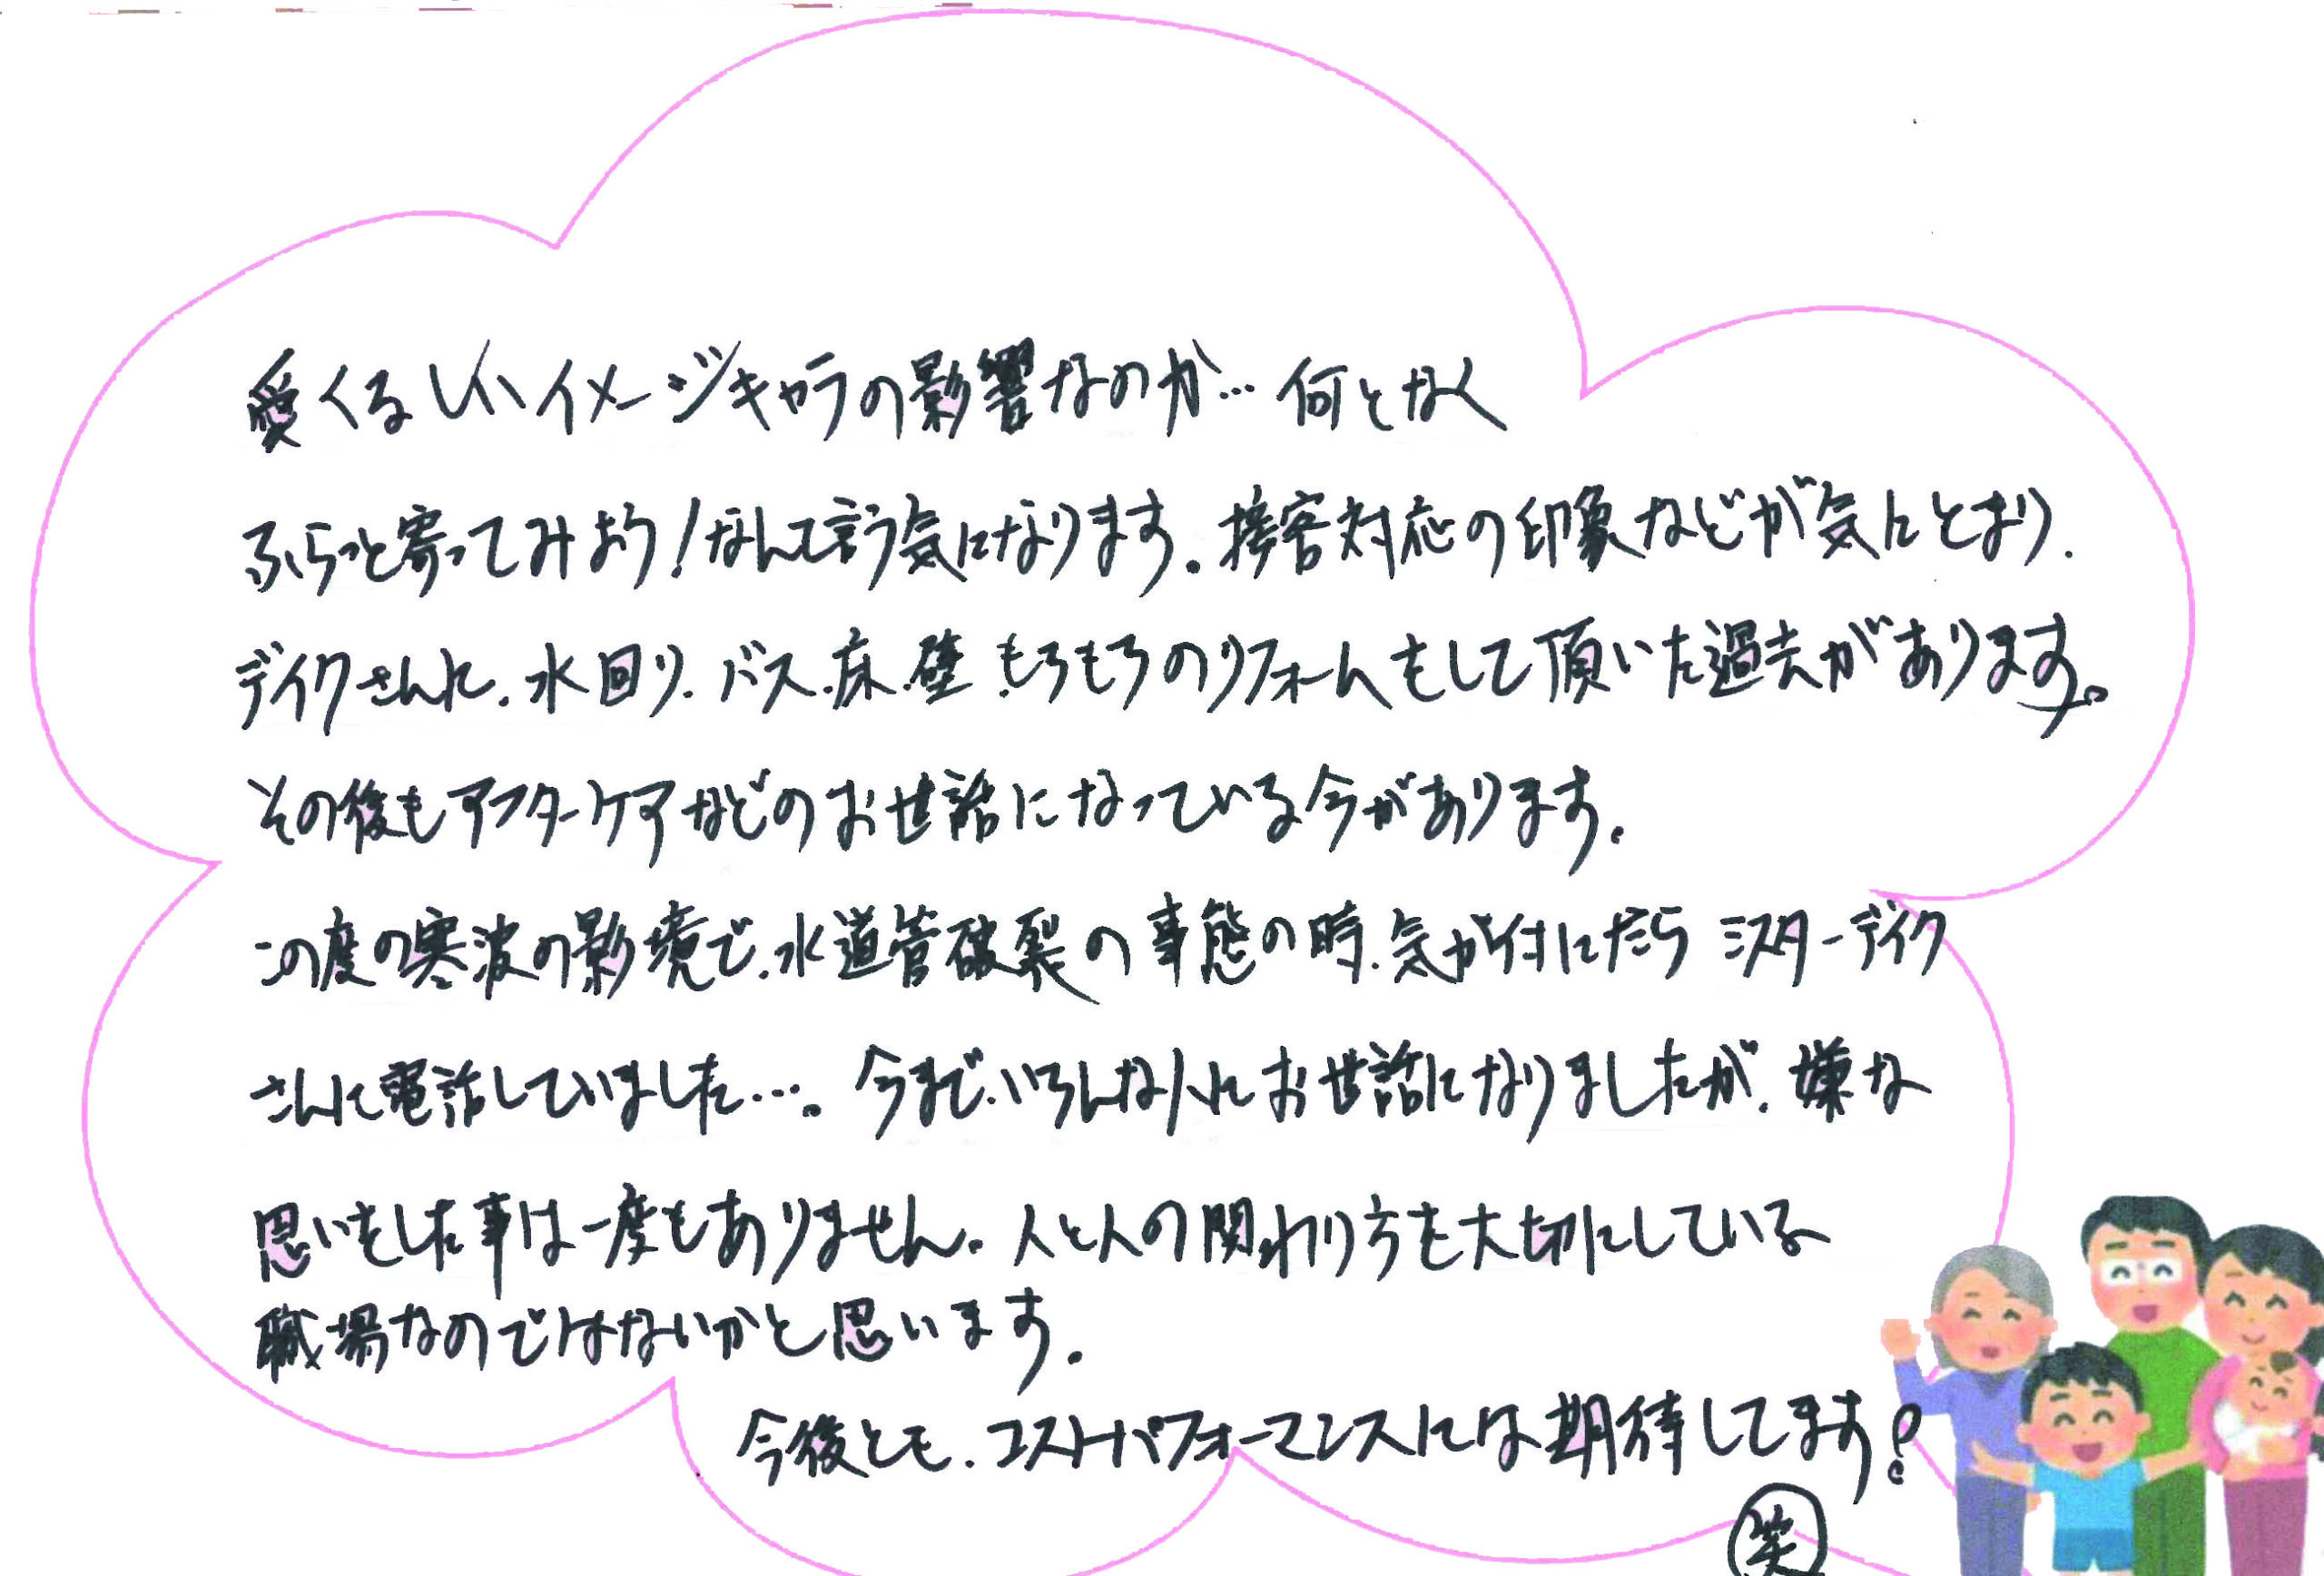 愛くるしいイメージキャラの影響なのか…何となく
ふらっと寄ってみよう!なんて言う気になります。接客対応の印象などが気にとまり、
デイクさんに、水回り、バス、床、壁、もろもろのリフォームをして頂いた過去があります。
その後もアフターケアなどのお世話になっている今があります。
この度の寒波の影境で、水道管破裂の事態の時、気が付いたらミスターデイク
さんに電話していました…。今まで、いろんな人にお世話になりましたが、嫌な
思いをした事は一度もありません。人と人の関わり方を大切にしている
職場なのではないかと思います。
今後とも、コストパフォーマンスには期待してます!
笑